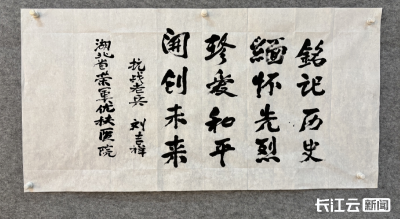 銘记历史
緬怀先烈
珍爱和平
開创未来
抗战老兵 刘吉祥
湖北省荣军优抚医院
长江云新闻